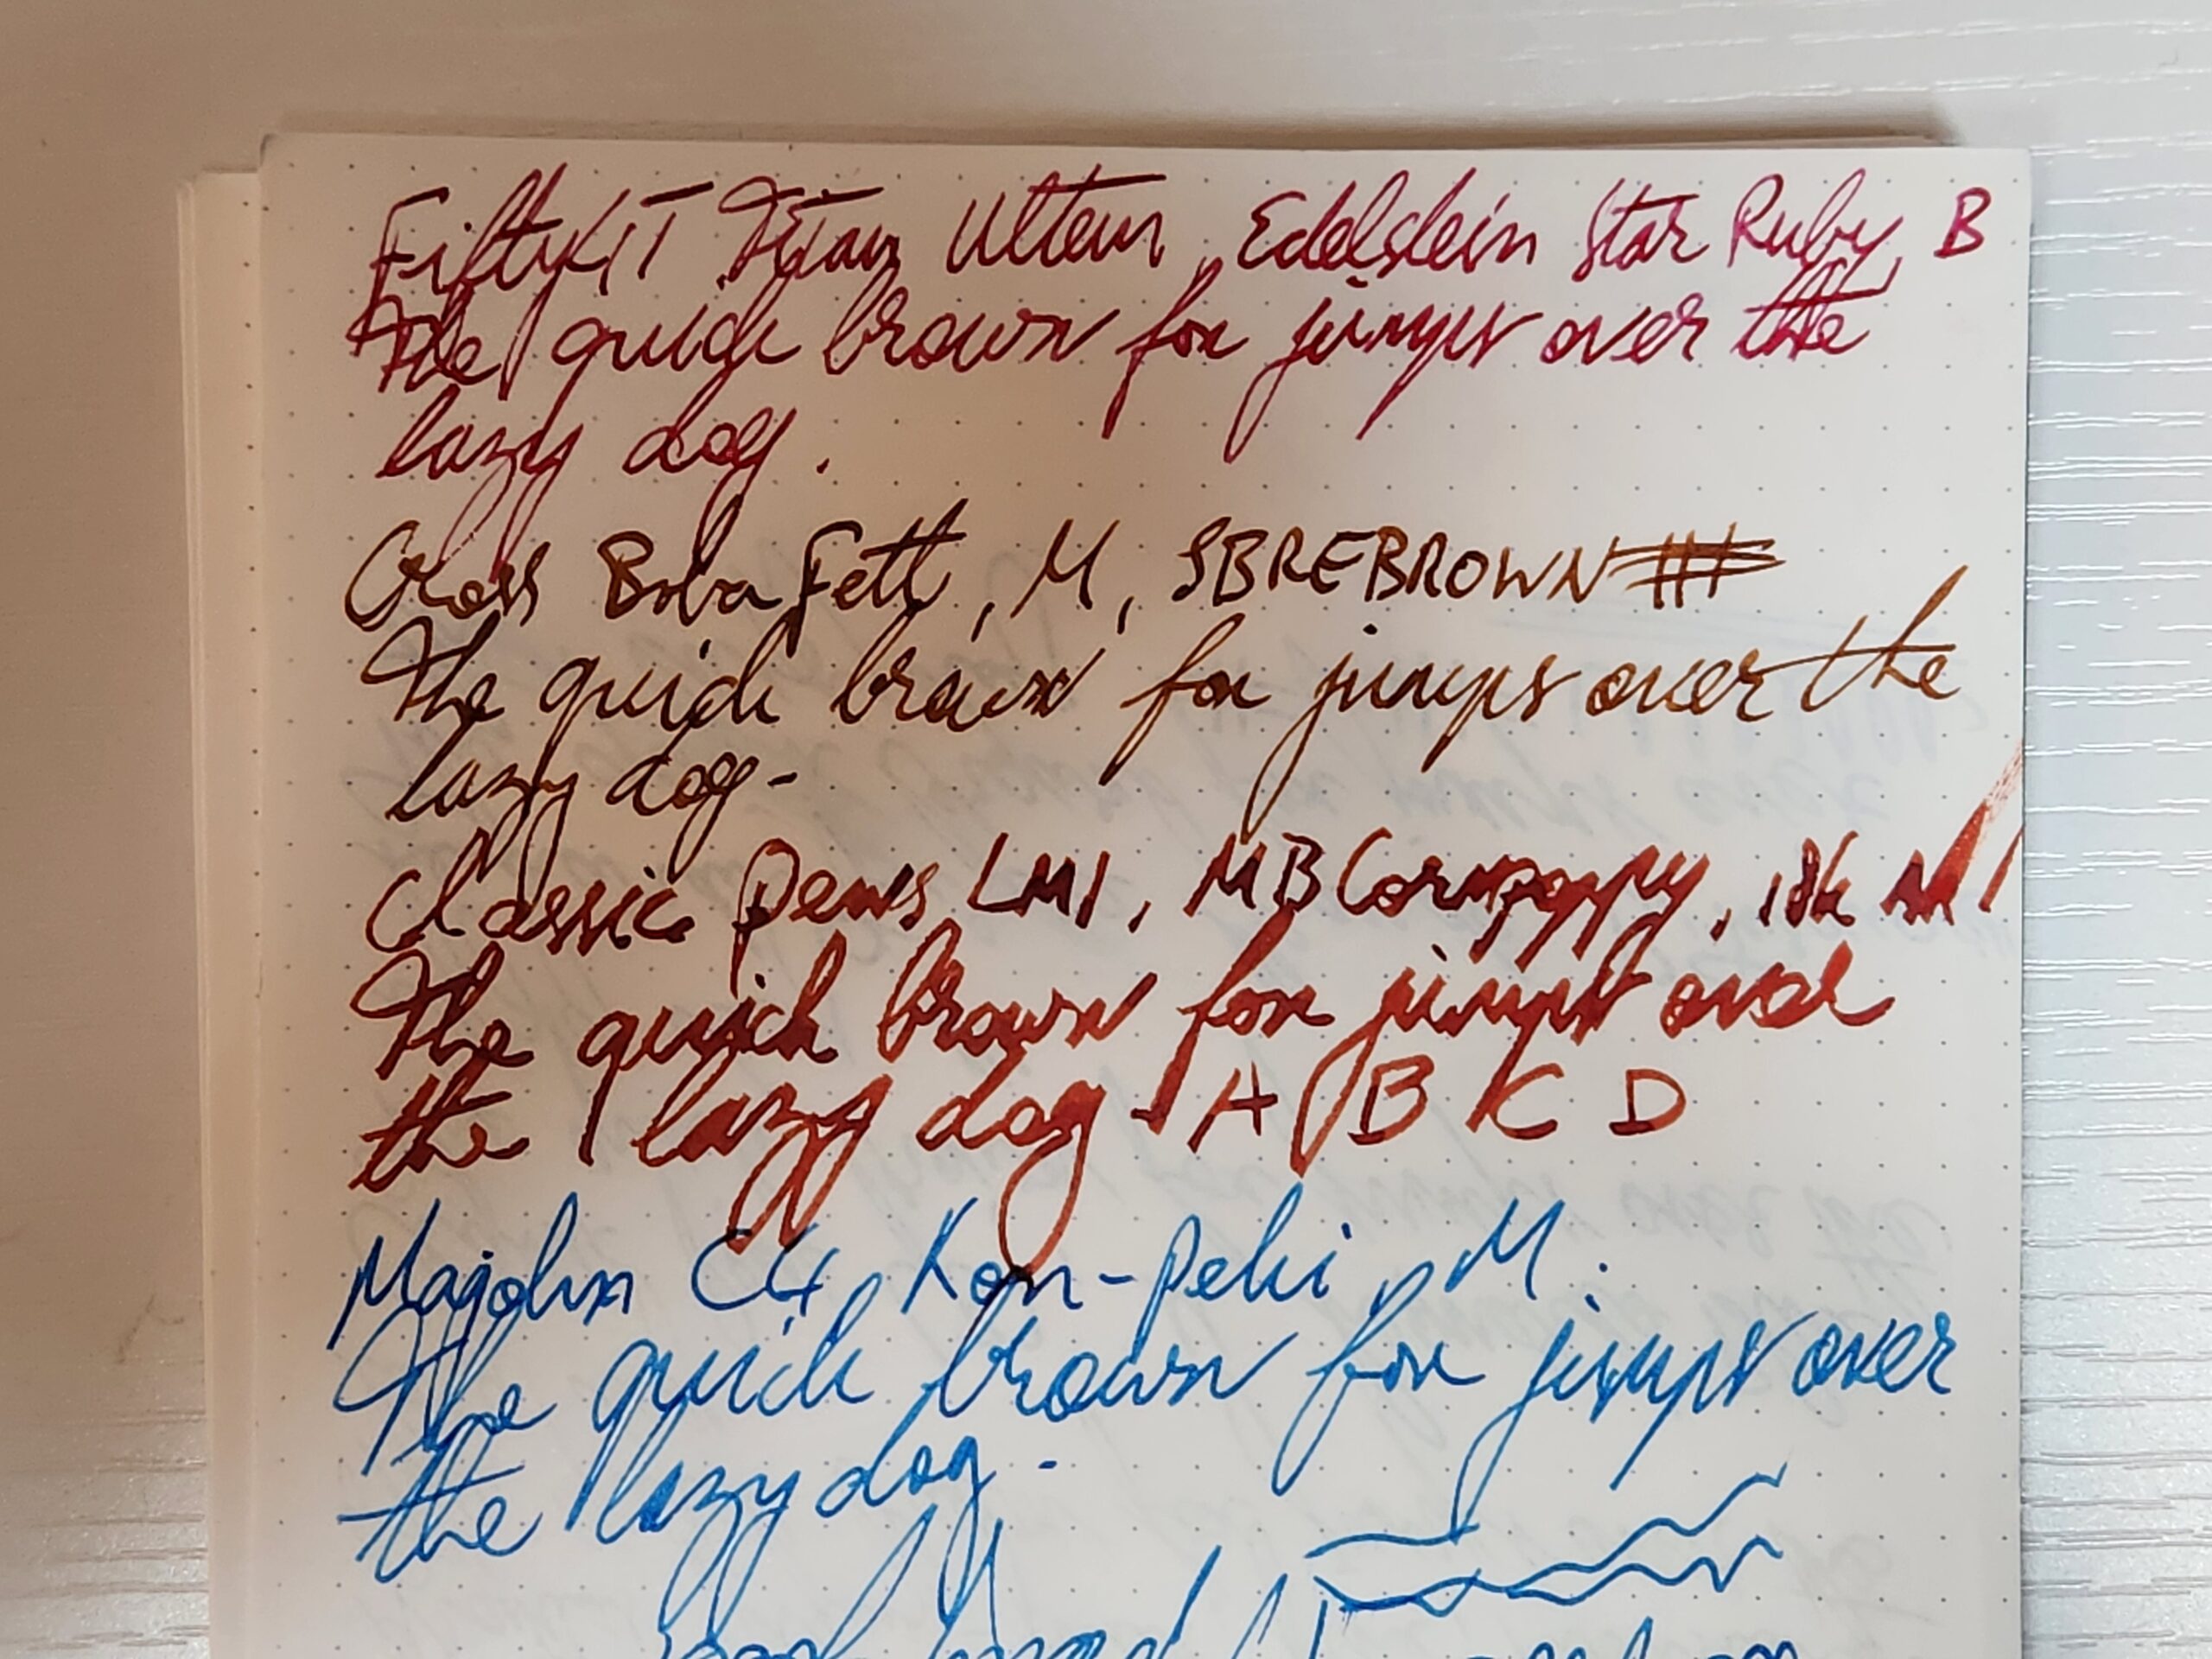 Fifty4IT Titan Ultem, Edelstein Star Ruby, B
The quick brown fox jumps over the
lazy dog.
Cross Boba Fett, M, SBREBROWN
The quick brown fox jumps over the
lazy dog-
Classic Pens LM1, MB Cornpoppy, 18k M
The quick brown fox jumps over
the lazy dog - A B C D
Majohn C4 Kon-peki, M.
The quick brown fox jumps over
the lazy dog.